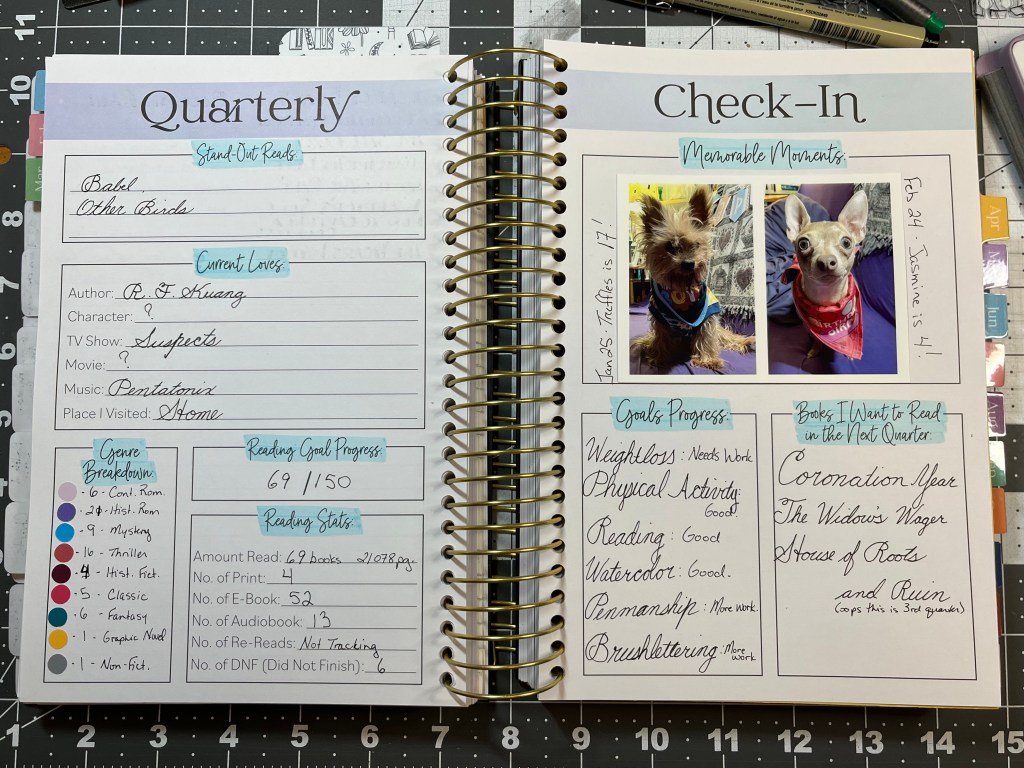 Quarterly
Stand-Out Reads:
Babel.
Other Birds
Current Loves:
Author: R. F. Kuang
Character: ?
TV Show: Suspects
Movie: ?
Music: Pentatonix
Place I Visited: Home
Genre
Breakdown:
- 6 - Cont. Rom.
- 20 - Hist. Rom
- 9 - Mystery
- 16 - Thriller
- 4 - Hist. Fict.
- 5 - Classic
- 6 - Fantasy
- 1 - Graphic Novel
- 1 - Non-Fict.
Reading Goal Progress:
69 / 150
Reading Stats:
Amount Read: 69 books 21078 pgs.
No. of Print: 4
No. of E-Book: 52
No. of Audiobook: 13
No. of Re-Reads: Not Tracking
No. of DNF (Did Not Finish): 6
Check-In
Memorable Moments:
Jan 25 · Truffles is 17!
Feb 24 · Jasmine is 4!
Goals Progress:
Weightloss: Needs Work
Physical Activity:
Good.
Reading: Good
Watercolor: Good.
Penmanship: More Work.
Brushlettering: More
work
Books I Want to Read
in the Next Quarter:
Coronation Year
The Widow's Wager
House of Roots
and Ruin
(oops this is 3rd quarter)
Mar
Apr
Jun
Aug
11
10
9
8
7
6
5
4
3
2
1
1 2 3 4 5 6 7 8 9 10 11 12 13 14 15